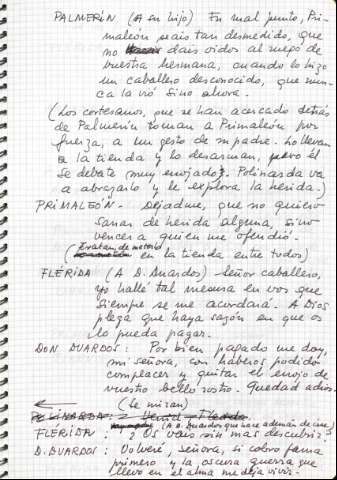 PALMERÍN (A su hijo) En mal punto, Pri-
maleón seais tan desmedido, que
no dais oidos al ruego de
vuestra hermana, cuando lo hizo
un caballero desconocido, que nun-
ca la vió sino ahora.
(Los cortesanos, que se han acercado detrás
de Palmerín toman a Primaleón por
fuerza, a un gesto de su padre. Lo llevan
a la tienda y lo desarman, pero él
se debate (muy enojado). Polinarda va
a abrazarlo y le explora la herida.)
PRIMALEÓN - Dejadme, que no quiero
sanar de herida alguna, sino
vencer a quien me ofendió.
(Tratan de meterlo en la tienda entre todos)
FLERIDA (A D. Duardos) - Señor caballero,
yo hallé tal mesura en vos que
siempre se me acordará. A Dios
plega que haya sazón en que os
lo pueda pagar.
DON DUARDOS: Por bien pagado me doy,
mi señora, con haberos podido
complacer y quitar el enojo de
vuestro bello rostro. Quedad adios.
(Se miran)
(A D. Duardos que hace ademán de irse)
FLERIDA: ¿Os vais sin mas descubrir?
D. DUARDOS: Volveré, señora, si cobro fama
primero y la oscura guerra que
llevo en el alma me deja vivir.